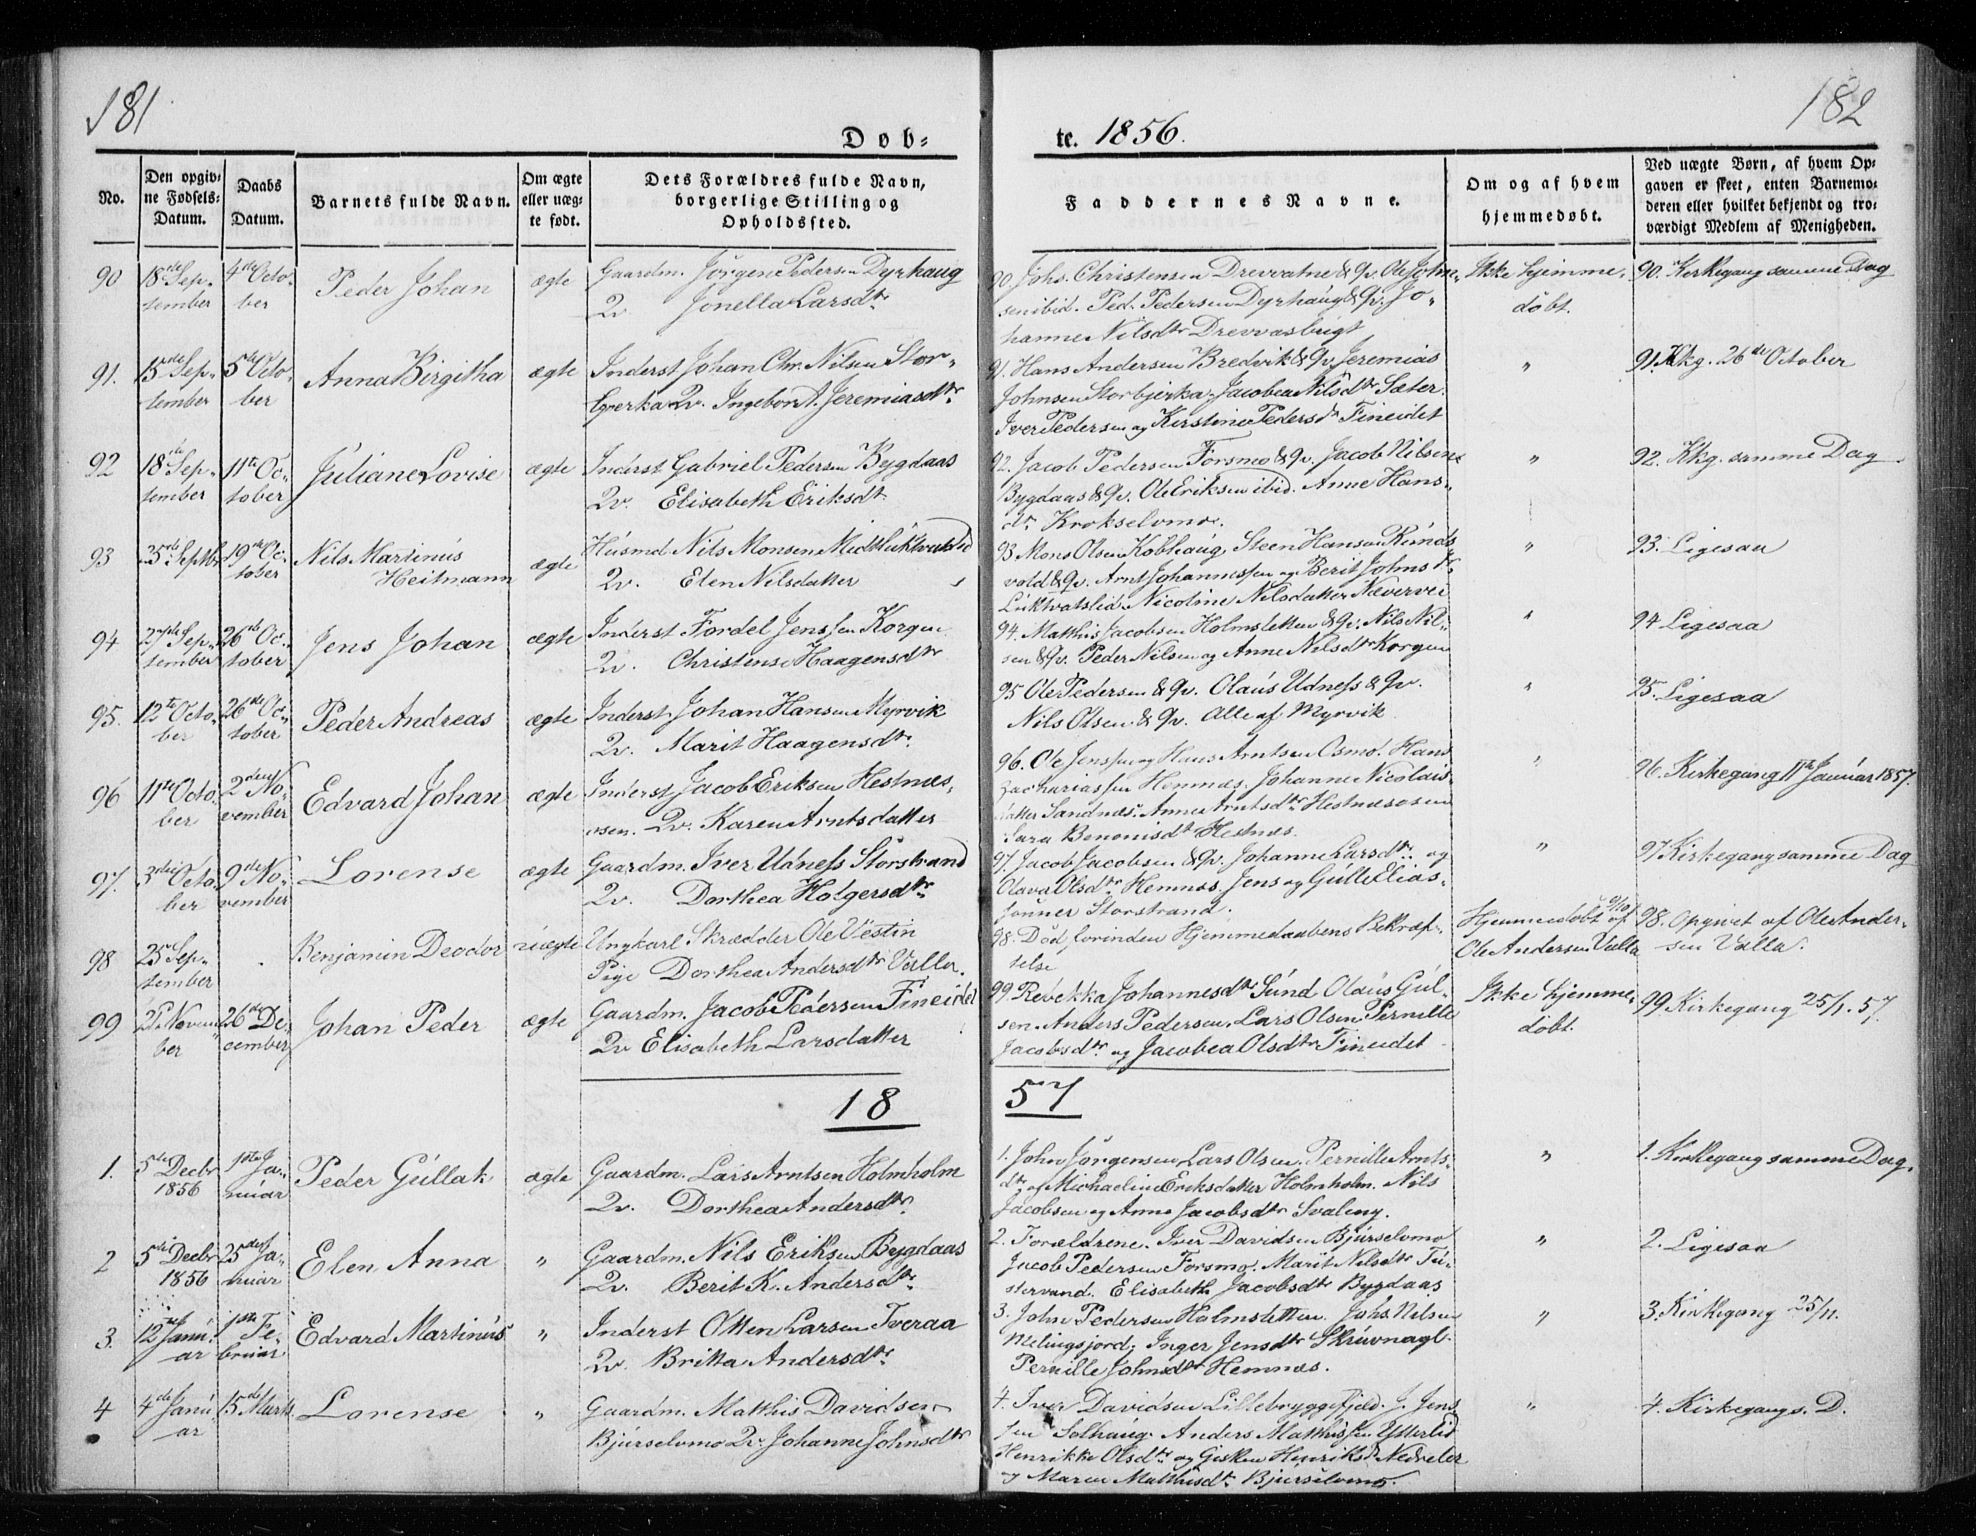 181
182
Døb-
te. 1856.
No.
Den opgiv-
ne Fødsels-
Datum.
Daabs
Datum.
Barnets fulde Navn.
Om ægte
eller uæg-
te født.
Dets Forældres fulde Navn,
borgerlige Stilling og
Opholdssted.
Faddernes Navne.
Om og af hvem
hjemmedøbt.
Ved uægte Børn, af hvem Op-
gaven er skeet, enten Barnemo-
deren eller hvilket bekjendt og tro-
værdigt Medlem af Menigheden.
90
18de Sep-
tember
4de Octo-
ber
Peder Johan
ægte
Gaardm. Jørgen Pedersen Dyrhaug
Qv. Jonella Larsdtr
90. Johs. Christensen Drevvatne & Qv. Ole Johne-
sen ibid. Ped. Pedersen Dyrhaug & Qv. Jo-
hanne Nilsdtr Drevvasbugt
Ikke hjemme-
døbt.
90. Kirkegang samme Dag
91.
15de Sep-
tember
5de Octo-
ber
Anna Birgitha
ægte
Inderst Johan Chr. Nilsen Stor-
bjerka Qv. Ingebor A. Jeremiasdtr
91. Hans Andersen Bredvik & Qv. Jeremias
Johnsen Storbjerka. Jacobea Nilsdtr Sæter.
Iver Pedersen og Kirstine Pedersdtr Fineidet
"
91. Kkg. 26de October
92
18de Sep-
tember
11te Oc-
tober
Juliane Lovise
ægte
Inderst Gabriel Pedersen Bygdaas
Qv. Elisabeth Eriksdtr
92. Jacob Pedersen Forsmo & Qv. Jacob Nilsen
Bygdaas & Qv. Ole Eriksen ibid. Anne Hans-
dtr Krokselvmo.
"
92. Kkg. samme Dag.
93
25de Septbr
19de Oc-
tober
Nils Martinus
Heitmann
ægte
Husmd Nils Monsen
Qv. Elen Nilsdatter
93. Mons Olsen Kobhaug, Steen Hansen
vold & Qv. Arnt Johannessen og Berit Johnsdtr
Luktvatslid. Nicoline Nilsdatter Nævervei
"
93. Ligesaa
94
27de Sep-
tember
26de Oc-
tober
Jens Johan
ægte
Inderst Fordel Jenssen Korgen
Qv. Christense Haagensdtr
94. Matthis Jacobsen Holmsletten & Qv. Nils Nil-
sen & Qv. Peder Nilsen og Anne Nilsdtr Korgen
"
94 Ligesaa
95.
12te Octo-
ber
26de Oc-
tober
Peder Andreas
ægte
Inderst Johan Hansen Myrvik
Qv. Marit Haagensdtr
95 Ole Pedersen & Qv. Olaus Udness & Qv.
Nils Olsen & Qv. Alle af Myrvik
"
95. Ligesaa
96
11te Octo-
ber
2den No-
vember
Edvard Johan
ægte
Inderst Jacob Eriksen Hestnæs-
osen. Qv. Karen Arntsdatter
96. Ole Jenssen og Hans Arntsen Osmo. Hans
Zachariassen Hemnæs. Johanne Nicolais-
datter Sandnæs. Anne Arntsdtr Hestnæsosen
Sara Benonisdtr Hestnæs.
"
96. Kirkegang 11te Januar 1857.
97.
3die Octo-
ber
9de No-
vember
Lorense
ægte
Gaardm. Iver Udness Storstrand
Qv. Dorthea Holgersdtr
97. Jacob Jacobsen & Qv. Johanne Larsdtr og
Olava Olsdtr Hemnæs. Jens og Gulle Elias-
sønner Storstrand.
"
97 Kirkegang samme Dag
98
25 Sep-
tember
.
Benjamin Deodor
uægte
Ungkarl Skrædder Ole Vestin
Pige Dorthea Andersdtr Valla.
98. Død forinden Hjemmedaabens Bekræf-
telse
Hjemmedøbt 9/10 af
Ole Andersen Valla
98. Opgivet af Ole Ander-
sen Valla.
99
21 Novem-
ber
26de De-
cember
Johan Peder
ægte
Gaardm. Jacob Pedersen Fineidet
Qv Elisabeth Larsdatter
99. Rebekka Johannesdtr Sund Olaus Gul-
sen. Anders Pedersen, Lars Olsen Pernille
Jacobsdtr og Jacobea Olsdtr Fineidet
Ikke hjemme-
døbt.
99. Kirkegang 25/1. 57.
18
57
1.
5de Decbr
1856
1ste Ja-
nuar
Peder Gullak
ægte
Gaardm. Lars Arntsen Holmholm
Qv. Dorthea Andersdtr
1. John Jørgensen Lars Olsen. Pernille Arnts-
dtr og Michaeline Eriksdatter Holmholm. Nils
Jacobsen og Anne Jacobsdtr Svaleng.
"
1. Kirkegang samme Dag.
2
5de Decbr
1856
25de Ja-
nuar
Elen Anna
"
Gaardm. Nils Eriksen Bygdaas
Qv. Berit K. Andersdtr
2. Forældrene. Iver Davidsen Bjurselvmo
Jacob Pedersen Forsmo. Marit Nilsdtr Fu-
stervand. Elisabeth Jacobsdtr Bygdaas
"
2. Ligesaa
3.
12te Janu-
ar
1ste Fe-
bruar
Edvard Martinus
"
Inderst Otten Larsen Tveraa
Qv. Britta Andersdtr
3. John Pedersen Holmsletten. Johs. Nilsen
Melingsjord. Inger Jensdtr Skrivnagl.
Pernille Johnsdtr Hemnæs.
"
3. Kirkegang 25/11.
4
4de Janu-
ar
15de Marts
Lorense
"
Gaardm. Matthis Davidsen
Bjurselvmo Qv. Johanne Johnsdtr
4. Iver Davidsen Lillebryggfjeld. J. Jens
sen Solhaug. Anders Matthissen Ytterlid
Henrikke Olsdtr og Gisken Henriksdtr Nedreler
og Maren Matthisdtr Bjurselvmo.
"
4. Kirkegang s. D.